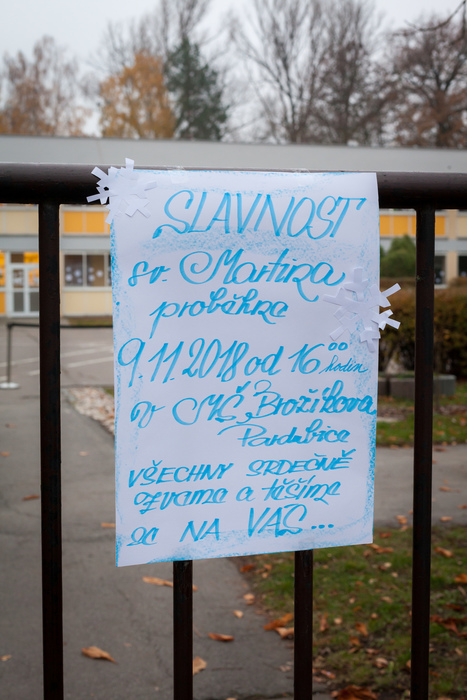 SLAVNOST
sv. Martina
proběhne
9.11.2018 od 16⁰⁰ hodin
v MŠ „Brožíkova,
Pardubice
VŠECHNY SRDEČNĚ
zveme a těšíme
se NA VÁS...